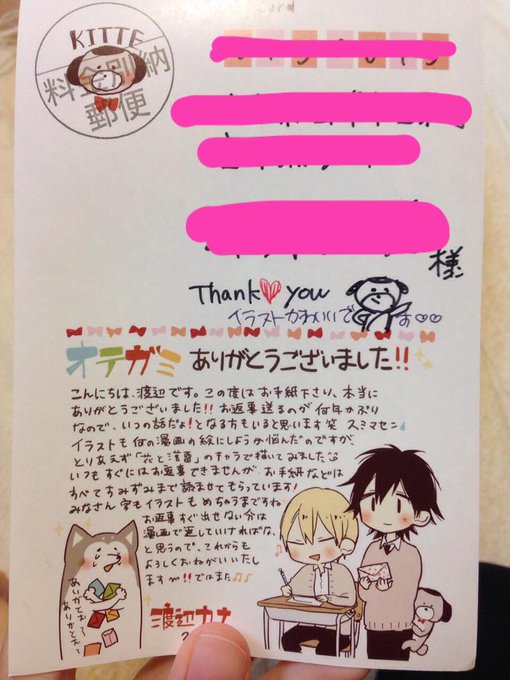 KITTE
料金別納
郵便
様
Thank you
イラストかわいいです
オテガミ ありがとうございました!!
こんにちは、渡辺です。この度はお手紙下さり、本当に
ありがとうございました!! お返事送るのが何年かぶり
なので、いつの話だよ!となる方もいると思います笑 スミマセン
イラストも何の漫画の絵にしようか悩んだのですが、
とりあえず「花と洋音」のキャラで描いてみました
いつもすぐにはお返事できませんが、お手紙などは
すべてすみずみまで読ませてもらっています!
みなさん字もイラストもめちゃうまですね
お返事すぐ出せない分は
漫画で返していければな、
と思うので、これからも
よろしくおねがいいたし
ます!! ではまた♫
ありがとおって
ありがとおって
渡辺カナ